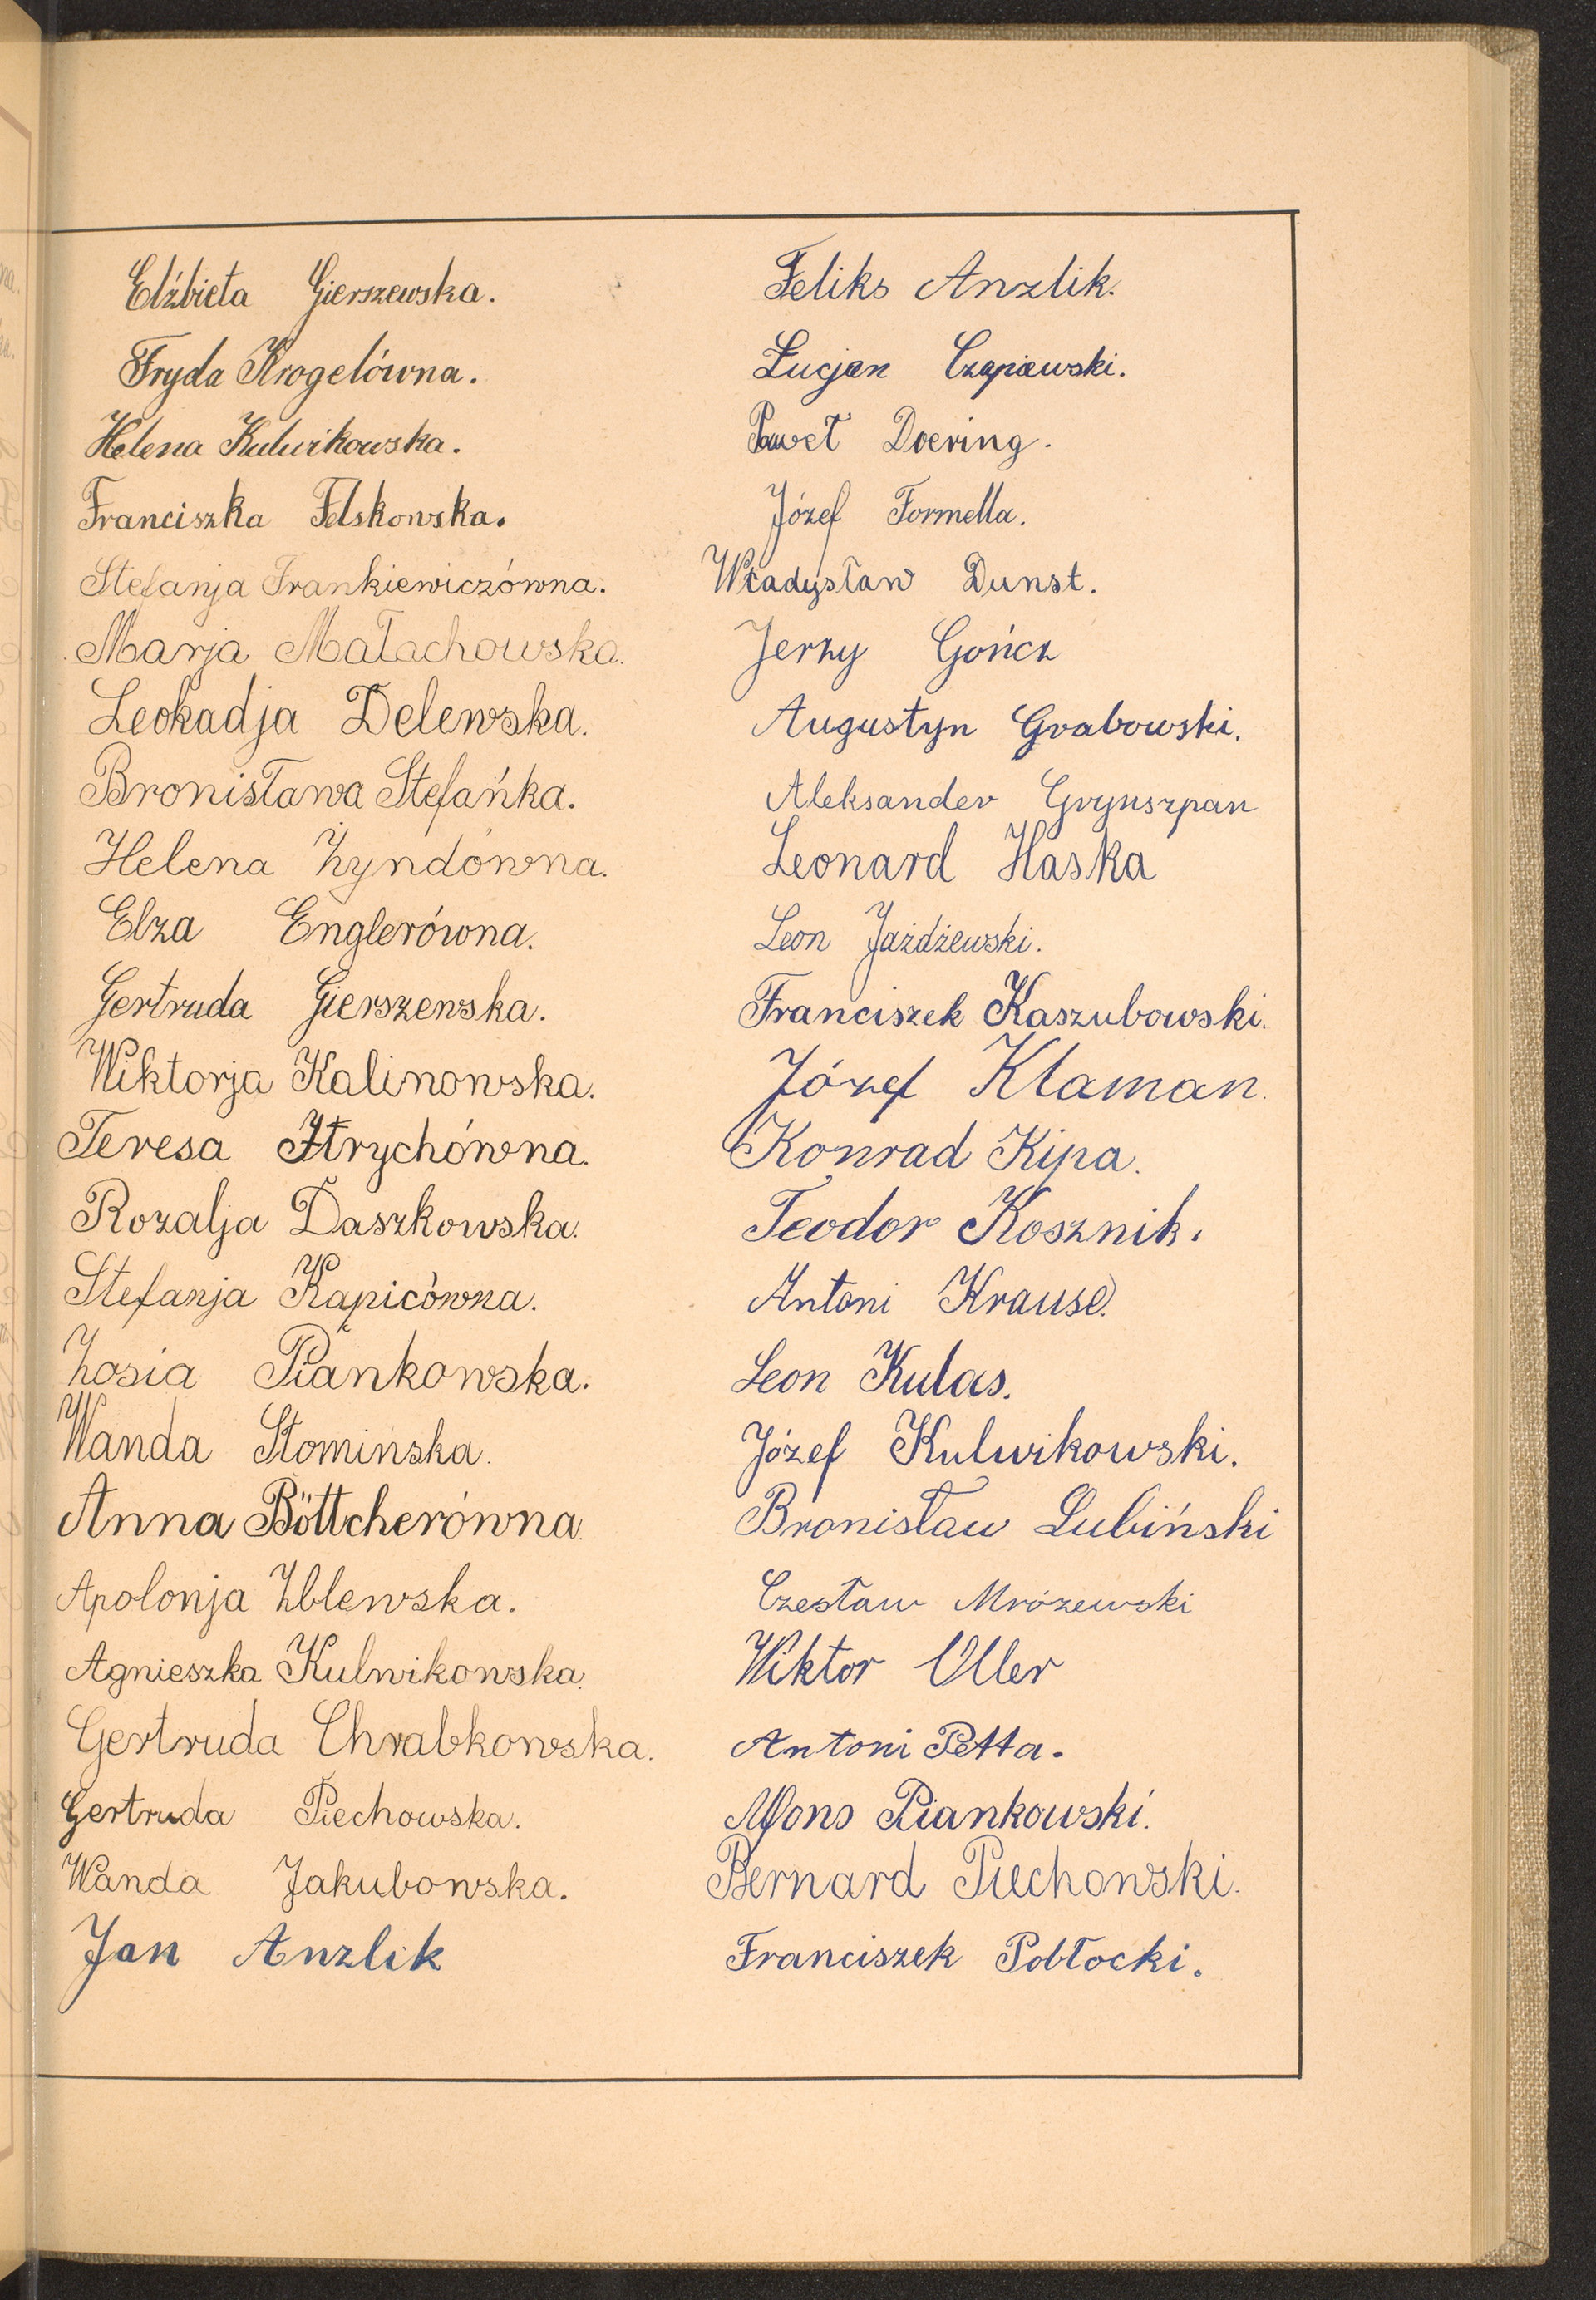 Elżbieta Gierszewska.
Fryda Krogelówna.
Helena Kulwikowska.
Franciszka Felskowska.
Stefanja Frankiewiczówna.
Marja Małachowska.
Leokadja Delewska.
Bronisława Stefańka.
Helena Zyndówna.
Elza Englerówna.
Gertruda Gierszewska.
Wiktorja Kalinowska.
Teresa
Rozalja Daszkowska.
Stefanja Kapicówna.
Zosia Piankowska.
Wanda Słomińska.
Anna Böttcherówna.
Apolonja Zblewska.
Agnieszka Kulwikowska.
Gertruda Chrabkowska.
Gertruda Piechowska.
Wanda Jakubowska.
Jan Anzlik
Feliks Anzlik.
Łucjan Czapiewski.
Paweł Doering.
Józef Formella.
Władysław Dunst.
Jerzy Gończ
Augustyn Grabowski.
Aleksander Grynszpan
Leonard Haska
Leon Jażdżewski.
Franciszek Kaszubowski.
Józef Klaman.
Konrad Kipa.
Teodor Kosznik.
Antoni Krause.
Leon Kulas.
Józef Kulwikowski.
Bronisław Lubiński
Czesław Mrózewski
Wiktor Oller
Antoni Petta.
Alfons Piankowski.
Bernard Piechowski.
Franciszek Pobłocki.